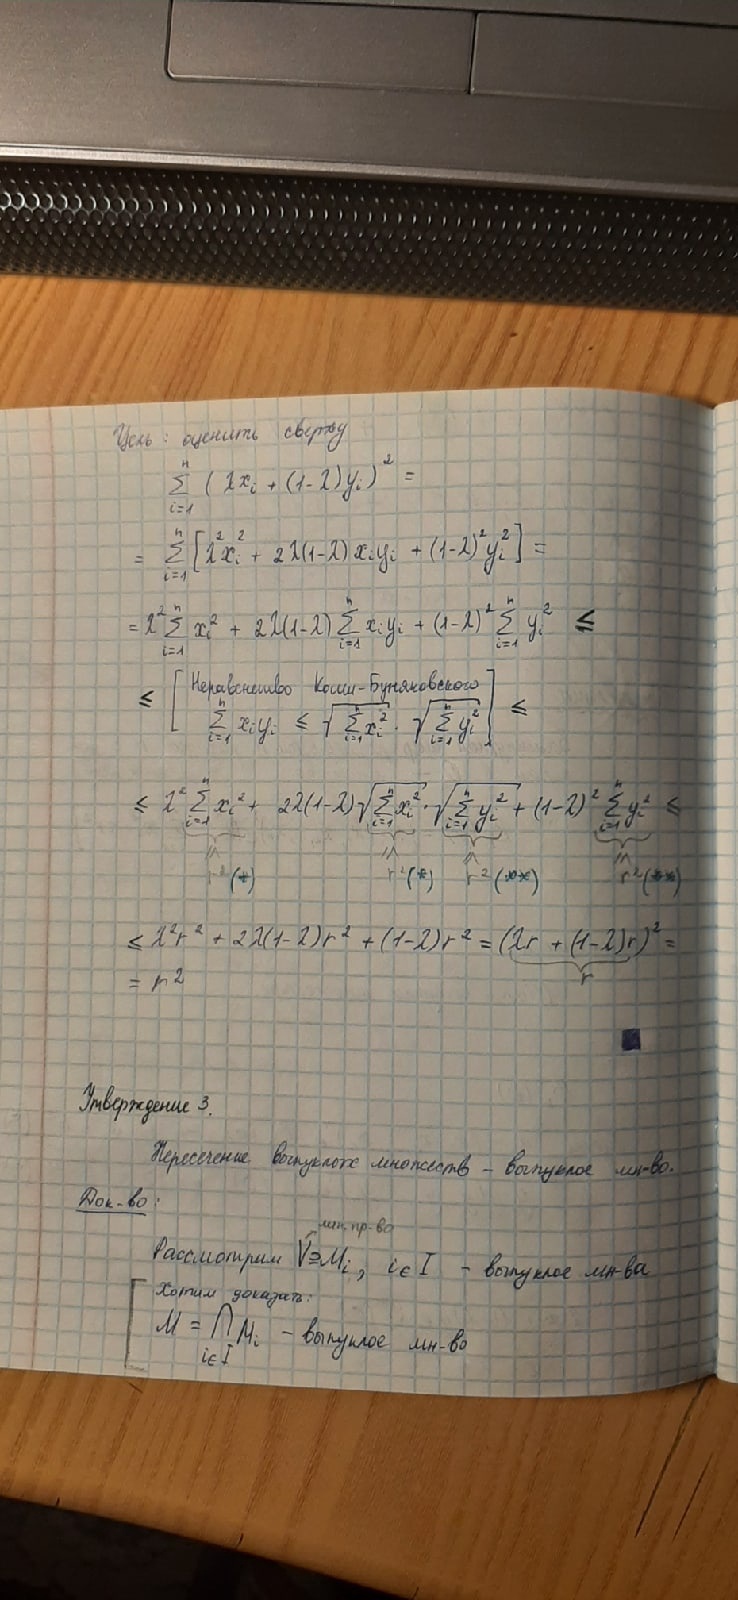 Цель: оценить сверху
∑_{i=1}^{n} (λx_i + (1-λ)y_i)² =
= ∑_{i=1}^{n} [λ²x_i² + 2λ(1-λ)x_iy_i + (1-λ)²y_i²] =
= λ² ∑_{i=1}^{n} x_i² + 2λ(1-λ) ∑_{i=1}^{n} x_iy_i + (1-λ)² ∑_{i=1}^{n} y_i² ≤
≤ [Неравенство Коши-Буняковского
∑_{i=1}^{n} x_iy_i ≤ √(∑_{i=1}^{n} x_i²) · √(∑_{i=1}^{n} y_i²)] ≤
≤ λ² ∑_{i=1}^{n} x_i² + 2λ(1-λ) √(∑_{i=1}^{n} x_i²) · √(∑_{i=1}^{n} y_i²) + (1-λ)² ∑_{i=1}^{n} y_i² ≤
r² (*) r² (*) r² (**) r² (**)
≤ λ²r² + 2λ(1-λ)r² + (1-λ)r² = (λr + (1-λ)r)² =
r
= r²
Утверждение 3.
Пересечение выпуклых множеств – выпуклое мн-во.
Док-во:
лин. пр-во
Рассмотрим V ⊇ M_i, i ∈ I – выпуклое мн-ва
Хотим доказать:
M = ⋂_{i∈I} M_i – выпуклое мн-во